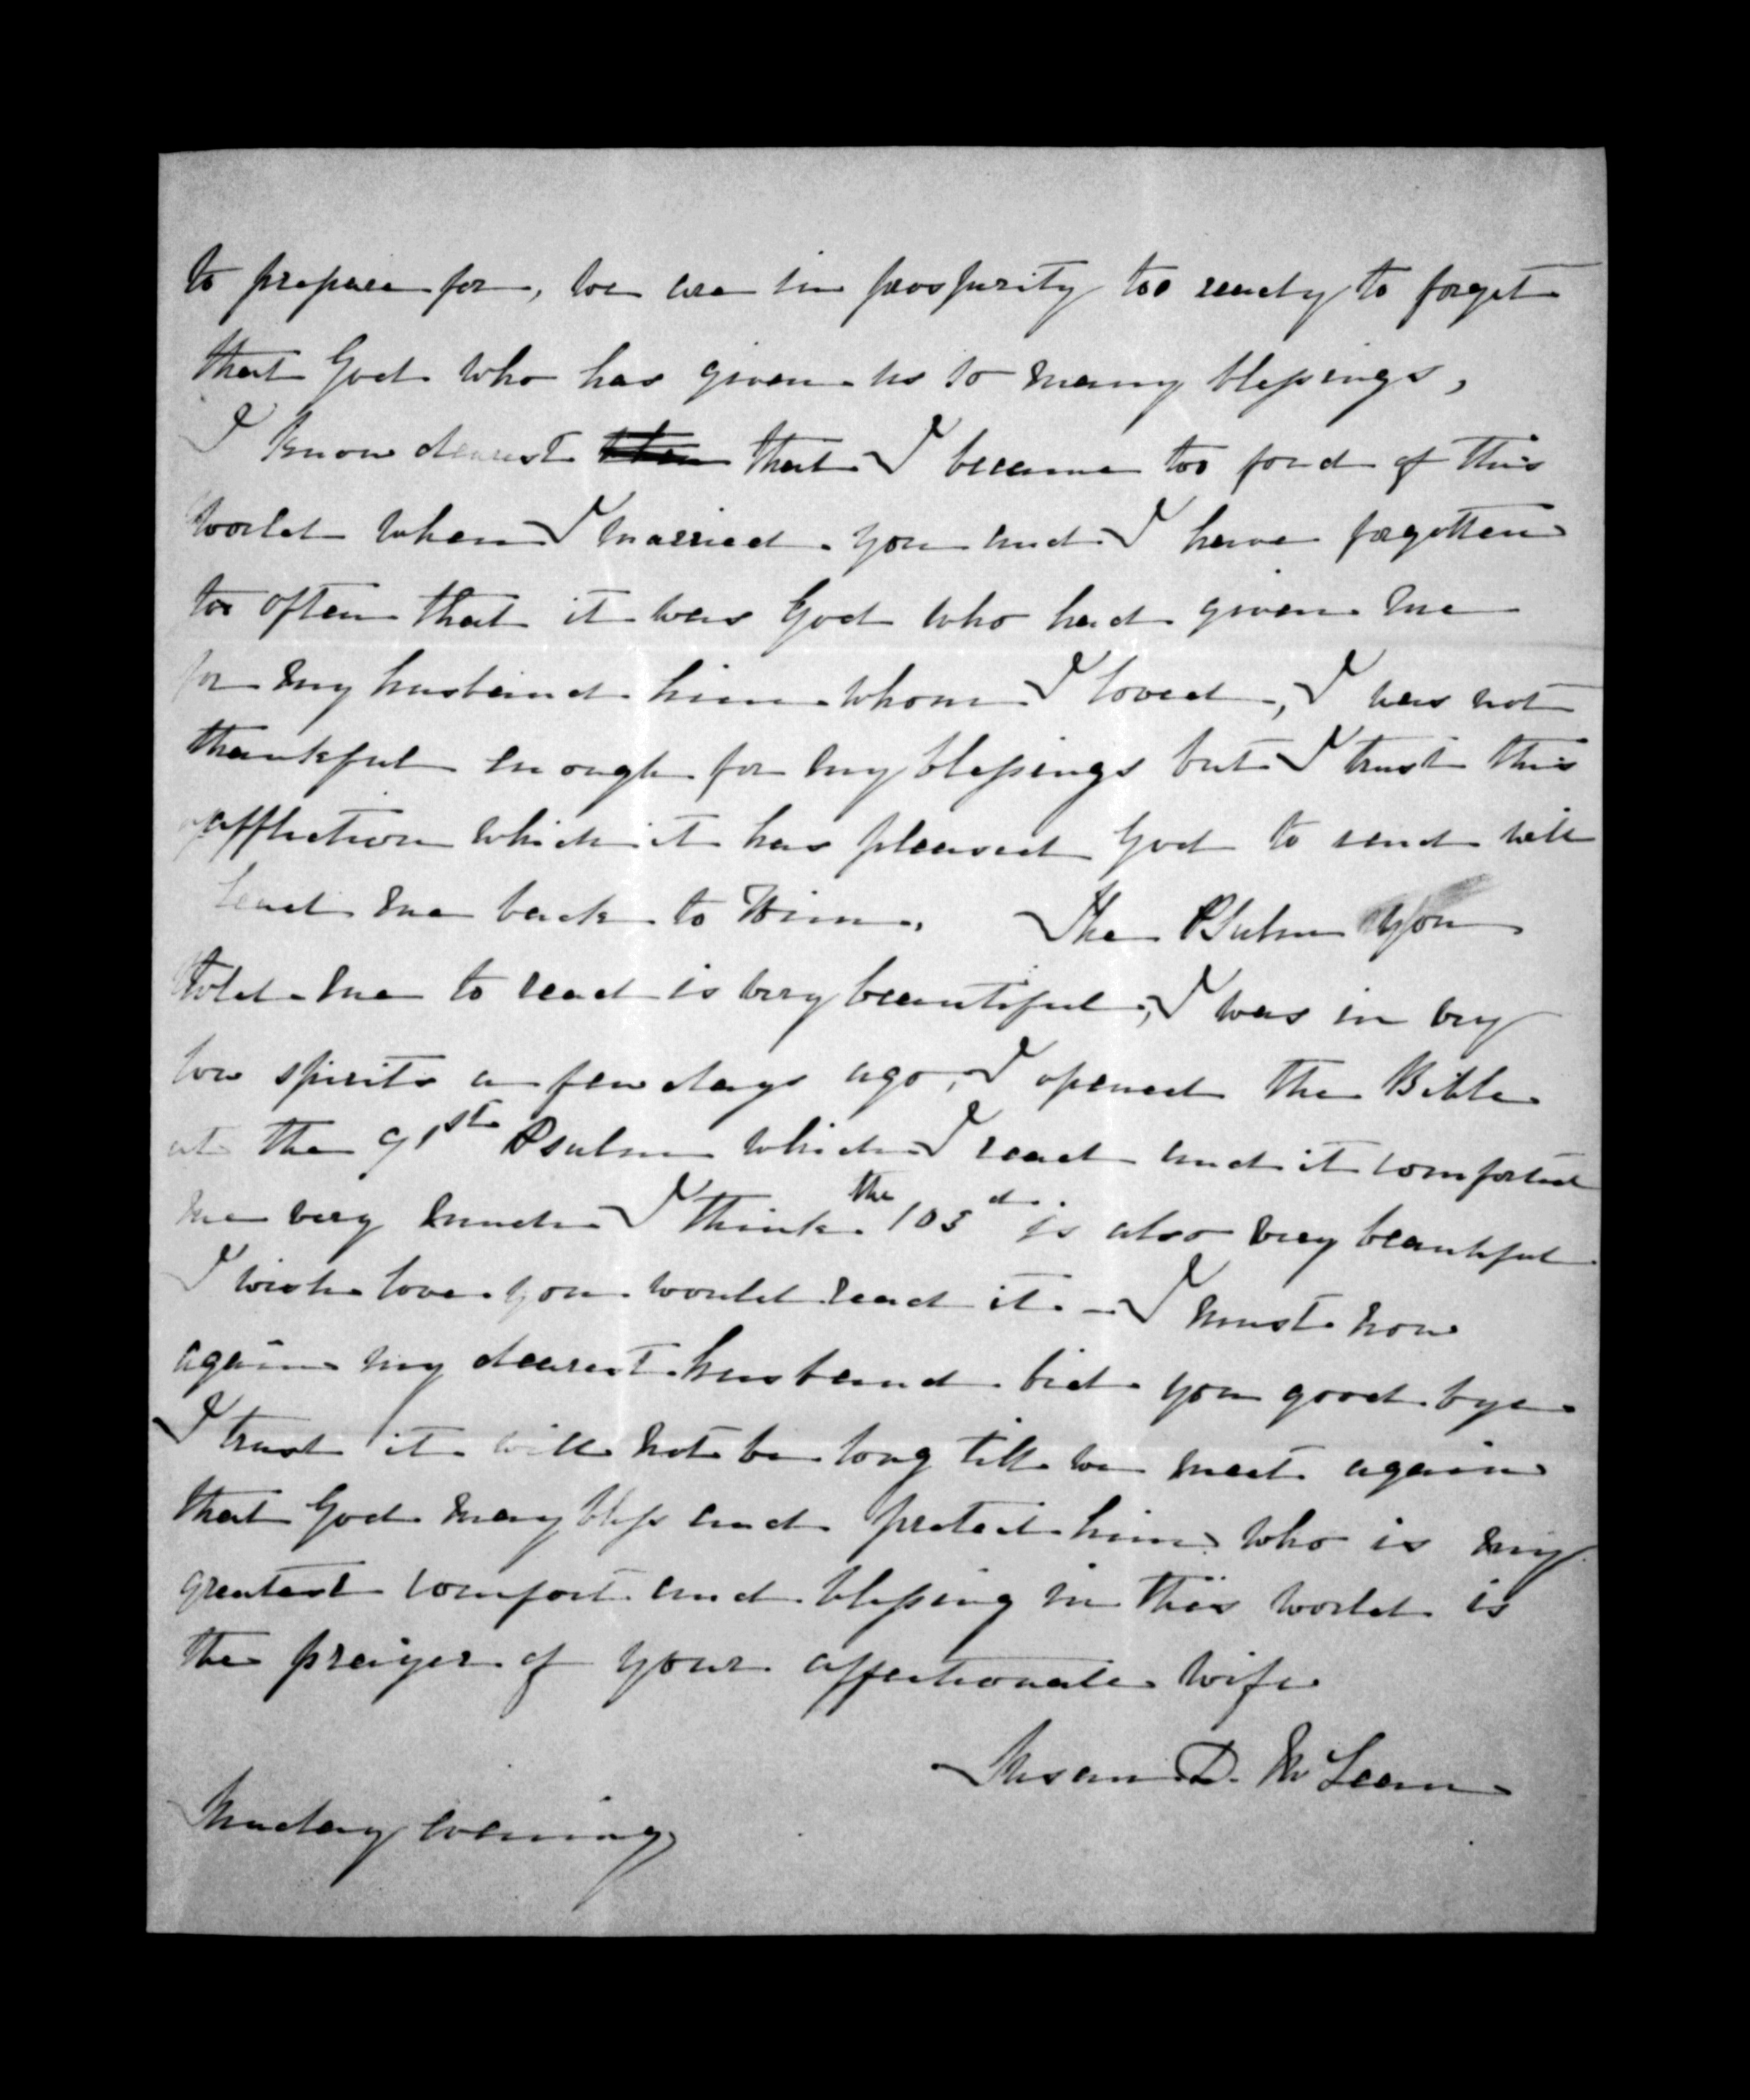 to prepare for, we are in prosperity too ready to forget
that God who has given us so many blessings,
I know dearest that I became too fond of this
world when I married you and I have forgotten
too often that it was God who had given me
for my husband him whom I loved, I was not
thankful enough for my blessings but I trust this
affliction which it has pleased God to send will
lead me back to Him. The Psalm you
told me to read is very beautiful, I was in very
low spirits a few days ago, I opened the Bible
at the 91st Psalm which I read and it comforted
me very much I think the 103d is also very beautiful
I wish love you would read it. - I must now
again my dearest husband bid you good bye
I trust it will not be long till we meet again
that God may bless and protect him who is my
greatest comfort and blessing in this world is
the prayer of your affectionate wife
Susan D. McLean
Sunday evening